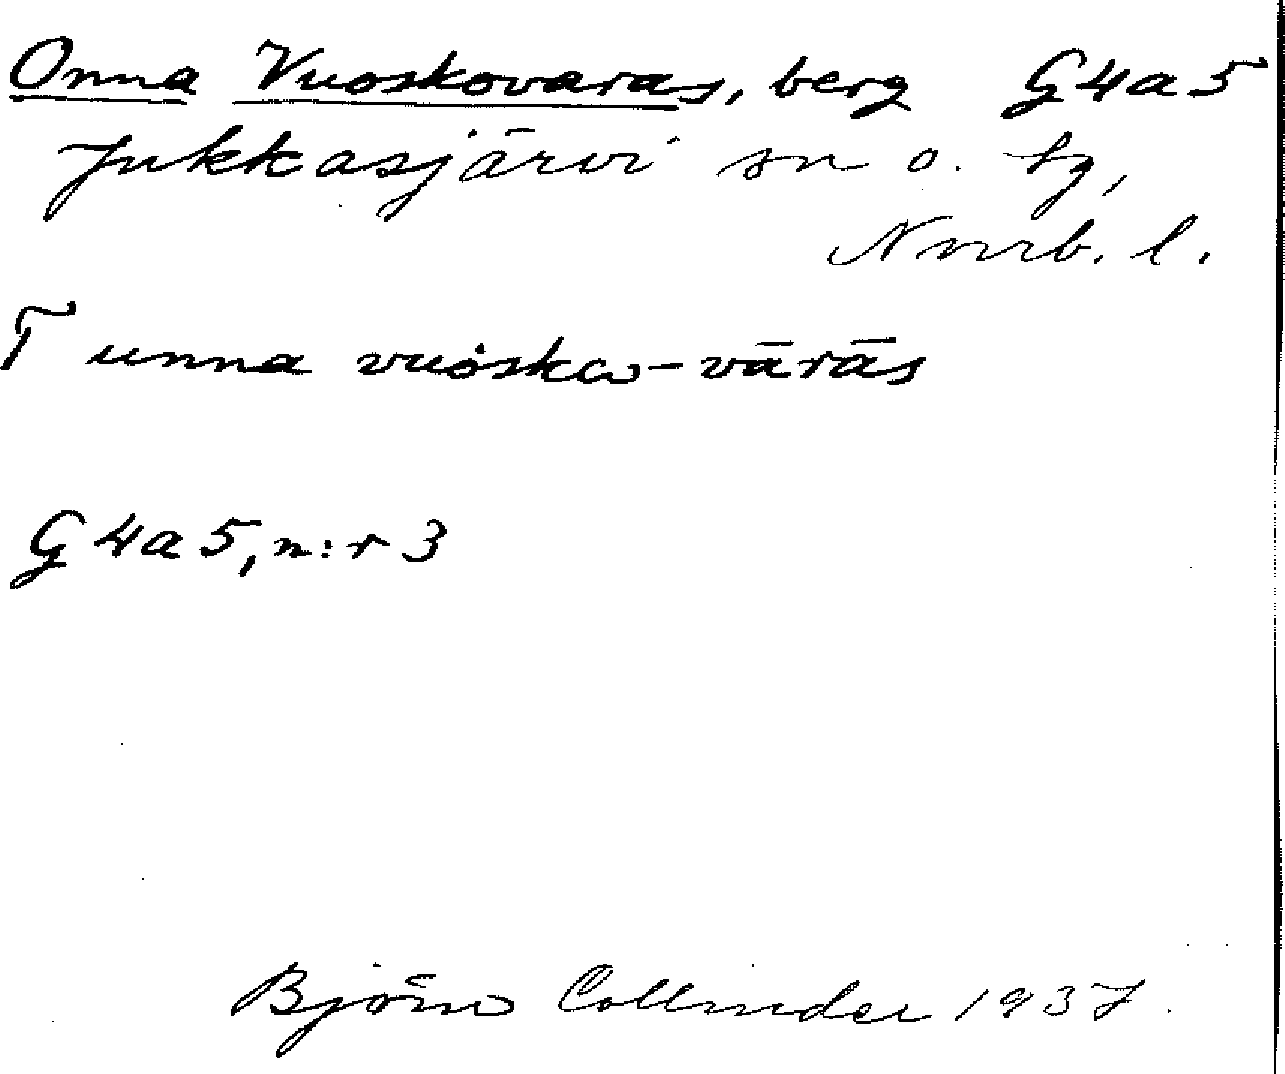 Onna Vuoskovaras, berg G4a5
Jukkasjärvi sn o. tg,
Norrb. l.
T unna vuȯska-vārās
G4a5, n:r 3
Björn Collinder 1937.